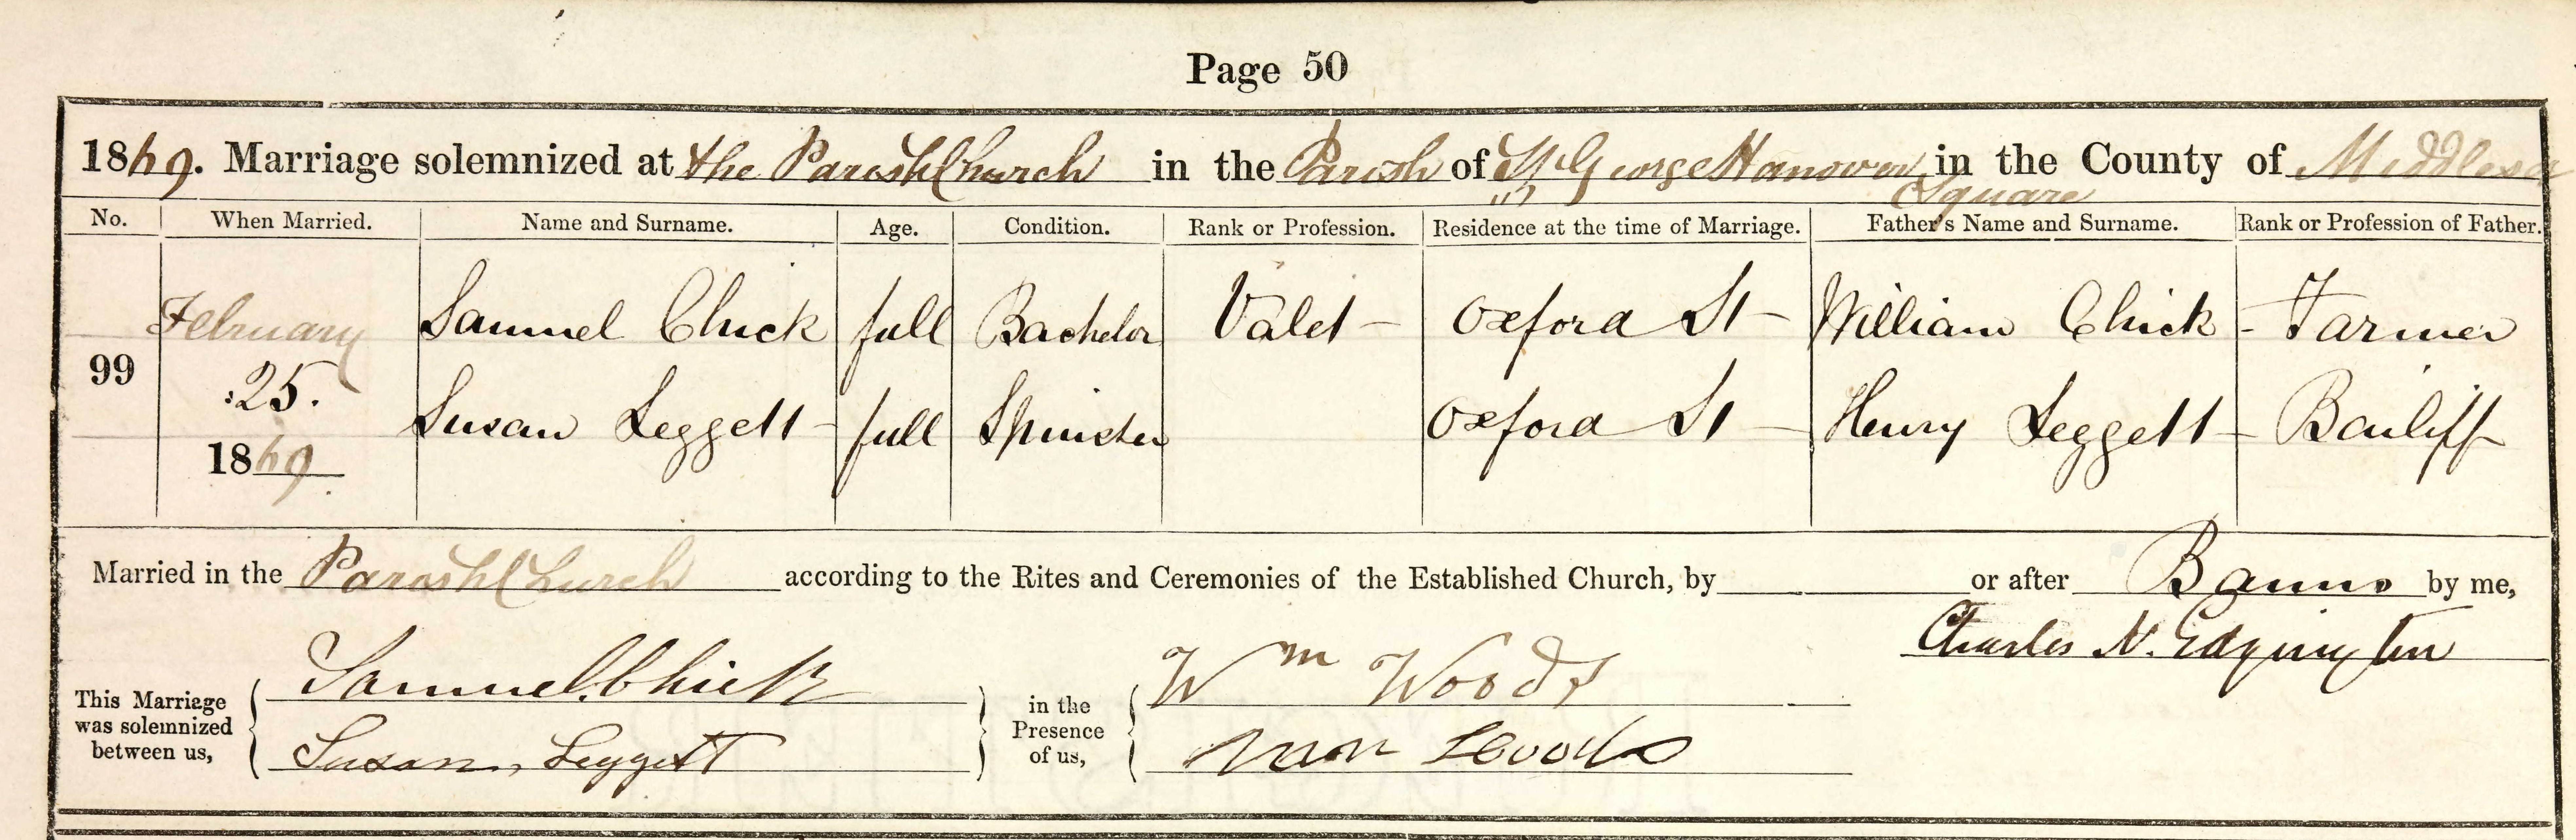 Page 50
1869. Marriage solemnized at the Parish Church in the Parish of St George Hanover Square in the County of Middlesex
No. When Married. Name and Surname. Age. Condition. Rank or Profession. Residence at the time of Marriage. Father's Name and Surname. Rank or Profession of Father.
February Samuel Chick full Bachelor Valet Oxford St William Chick Farmer
99 25. Susan Leggett full Spinster Oxford St Henry Leggett Bailiff
1869
Married in the Parish Church according to the Rites and Ceremonies of the Established Church, by or after Banns by me,
Charles N. Edgington
This Marriage was solemnized between us, Samuel Chick in the Presence of us, Wm Woods
Susan Leggett Woods